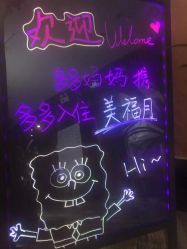 欢迎 Welcome
多多妈妈携
多多入住美福月
Hi~